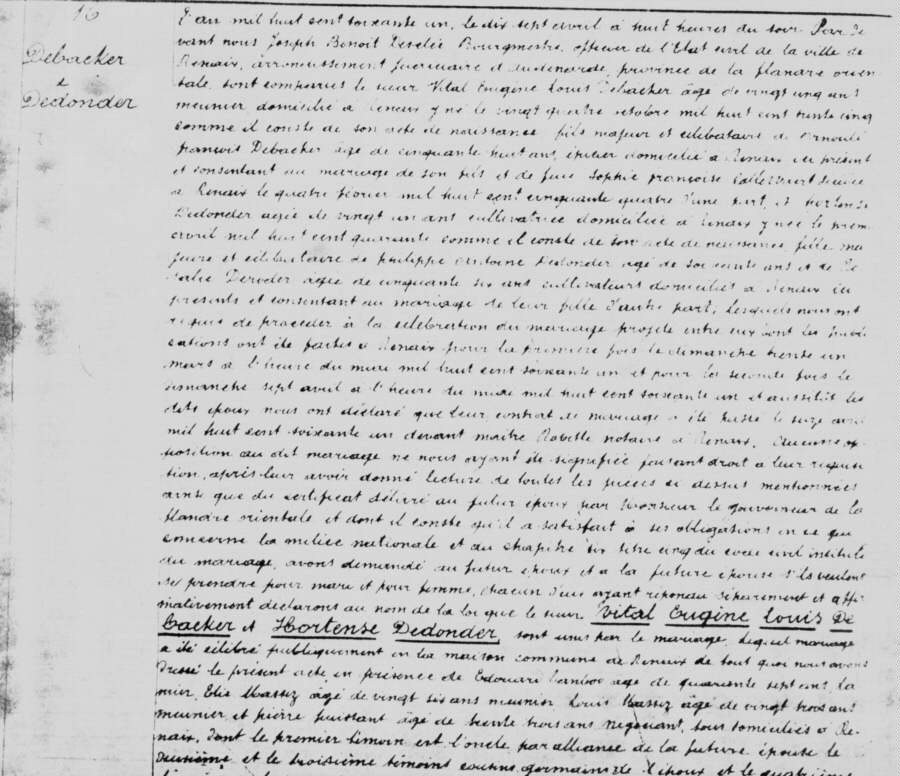 16
Debacker
&
Dedonder
L'an mil huit cent soixante un, le dix sept avril à huit heures du soir. Par de
vant nous Joseph Benoit Bourgmestre, officier de l'Etat civil de la ville de
Renaix, arrondissement judiciaire d'audenarde, province de la flandre orien
tale, sont comparus le sieur Vital Eugène Louis Debacker âgé de vingt cinq ans
meunier domicilié à Renaix y né le vingt quatre octobre mil huit cent trente cinq
comme il conste de son acte de naissance, fils majeur et célibataire de Arnould
françois Debacker âgé de cinquante huit ans, épicier domicilié à Renaix ici présent
et consentant au mariage de son fils et de feue Sophie françoise décédée
à Renaix le quatre février mil huit cent cinquante quatre d'une part, et hortense
Dedonder agée de vingt un ans cultivatrice domiciliée à Renaix y née le prem
avril mil huit cent quarante comme il conste de son acte de naissance, fille ma
jeure et célibataire de Philippe Antoine Dedonder agé de soixante ans et de Ro
salie Deroder agée de cinquante six ans cultivateurs domiciliés à Renaix ici
présents et consentant au mariage de leur fille d'autre part, Lesquels nous ont
requis de procéder à la célébration du mariage projeté entre eux dont les publi
cations ont été faites à Renaix pour la première fois le dimanche trente un
mars à l'heure du midi mil huit cent soixante un et pour la seconde fois le
dimanche sept avril à l'heure du midi mil huit cent soixante un et aussitôt les
dits époux nous ont déclaré que leur contrat de mariage a été passé le seize avril
mil huit cent soixante un devant maitre notaire à Renaix. Aucune op
position au dit mariage ne nous ayant été signifiée faisant droit à leur réquisi
tion, après leur avoir donné lecture de toutes les pièces ci dessus mentionnées
ainsi que du certificat délivré au futur époux par Monsieur le gouverneur de la
flandre orientale et dont il conste qu'il a satisfait à ses obligations en ce qui
concerne la milice nationale et du chapitre six titre cinq du code civil intitulé
du mariage, avons demandé au futur époux et à la future épouse s'ils veulent
se prendre pour mari et pour femme, chacun d'eux ayant répondu séparement et affir
mativement déclarons au nom de la loi que le sieur Vital Eugène Louis De
backer et Hortense Dedonder sont unis par le mariage, lequel mariage
a été célébré publiquement en la maison commune de Renaix de tout quoi nous avons
dressé le présent acte en présence de Edouard agé de quarante sept ans,
Elie Massiz âgé de vingt six ans meunier, Louis Massiz âgé de vingt trois ans
meunier, et pierre puissant âgé de trente trois ans négociant, tous domiciliés à Re
naix, dont le premier témoin est l'oncle par alliance de la future épouse le
deuxième et le troisième témoins cousins germains de l'époux et le quatrième